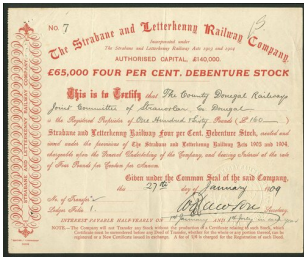 No. 7
15
The Strabane and Letterkenny Railway Company.
Incorporated under
The Strabane and Letterkenny Railway Acts 1903 and 1904
AUTHORISED CAPITAL, £140,000.
£65,000 FOUR PER CENT. DEBENTURE STOCK
This is to Certify that The County Donegal Railways
Joint Committee of Stranorlar Co Donegal
is the Registered Proprietor of One Hundred Sixty Pounds (£160
Strabane and Letterkenny Railway Four per Cent. Debenture Stock, created and
issued under the provisions of The Strabane and Letterkenny Railway Acts 1903 and 1904,
chargeable upon the Undertaking of the Company and bearing Interest at the rate
of Four Pounds per Centum per Annum.
Given under the Common Seal of the said Company,
the 27th day of January 1909
No. of Transfer
Ledger Folio 1. Secretary.
INTEREST PAYABLE HALF-YEARLY ON 1st January and 1st July in each year
NOTE.—The Company will not Transfer any Stock without the production of a Certificate relating to such Stock, which
Certificate must be surrendered before any Deed of Transfer, whether for the whole or any portion thereof, can be
registered or a New Certificate issued in exchange.